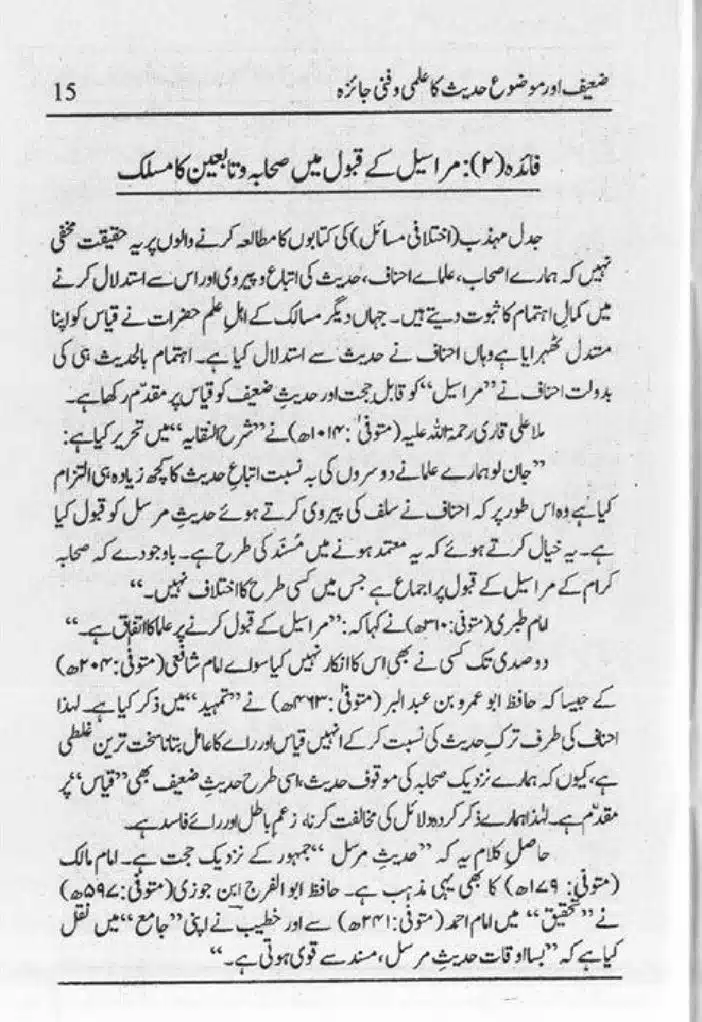 ضعیف اور موضوع حدیث کا علمی و فنی جائزہ 15
فائدہ (۲): مراسیل کے قبول میں صحابہ و تابعین کا مسلک
جدل مہذب (اختلافی مسائل) کی کتابوں کا مطالعہ کرنے والوں پر یہ حقیقت مخفی
نہیں کہ ہمارے اصحاب، علماے احناف، حدیث کی اتباع و پیروی اور اس سے استدلال کرنے
میں کمالِ اہتمام کا ثبوت دیتے ہیں۔ جہاں دیگر مسالک کے اہلِ علم حضرات نے قیاس کو اپنا
مستدل ٹھہرایا ہے وہاں احناف نے حدیث سے استدلال کیا ہے۔ اہتمام بالحدیث ہی کی
بدولت احناف نے ”مراسیل“ کو قابلِ حجت اور حدیثِ ضعیف کو قیاس پر مقدّم رکھا ہے۔
ملا علی قاری رحمۃ اللہ علیہ (متوفیٰ: ۱۰۱۴ھ) نے ”شرح النقایہ“ میں تحریر کیا ہے:
”جان لو ہمارے علما نے دوسروں کی بہ نسبت اتباعِ حدیث کا کچھ زیادہ ہی التزام
کیا ہے وہ اس طور پر کہ احناف نے سلف کی پیروی کرتے ہوئے حدیثِ مرسل کو قبول کیا
ہے۔ یہ خیال کرتے ہوئے کہ یہ معتمد ہونے میں مُسنَد کی طرح ہے۔ باوجودے کہ صحابہ
کرام کے مراسیل کے قبول پر اجماع ہے جس میں کسی طرح کا اختلاف نہیں۔“
امام طبری (متوفی: ۳۱۰ھ) نے کہا کہ: ”مراسیل کے قبول کرنے پر علما کا اتفاق ہے۔“
دو صدی تک کسی نے بھی اس کا انکار نہیں کیا سواے امام شافعی (متوفیٰ: ۲۰۴ھ)
کے جیسا کہ حافظ ابو عمرو بن عبد البر (متوفیٰ: ۴۶۳ھ) نے ”تمہید“ میں ذکر کیا ہے۔ لہٰذا
احناف کی طرف ترکِ حدیث کی نسبت کر کے انہیں قیاس اور راے کا عامل بتانا سخت ترین غلطی
ہے، کیوں کہ ہمارے نزدیک صحابہ کی موقوف حدیث، اسی طرح حدیثِ ضعیف بھی ”قیاس“ پر
مقدّم ہے۔ لہٰذا ہمارے ذکر کردہ دلائل کی مخالفت کرنا، زعمِ باطل اور رائے فاسد ہے۔
حاصلِ کلام یہ کہ ”حدیثِ مرسل“ جمہور کے نزدیک حجت ہے۔ امام مالک
(متوفیٰ: ۱۷۹ھ) کا بھی یہی مذہب ہے۔ حافظ ابو الفرج ابن جوزی (متوفیٰ: ۵۹۷ھ)
نے ”تحقیق“ میں امام احمد (متوفیٰ: ۲۴۱ھ) سے اور خطیب نے اپنی ”جامع“ میں نقل
کیا ہے کہ ”بسا اوقات حدیثِ مرسل، مسند سے قوی ہوتی ہے۔“